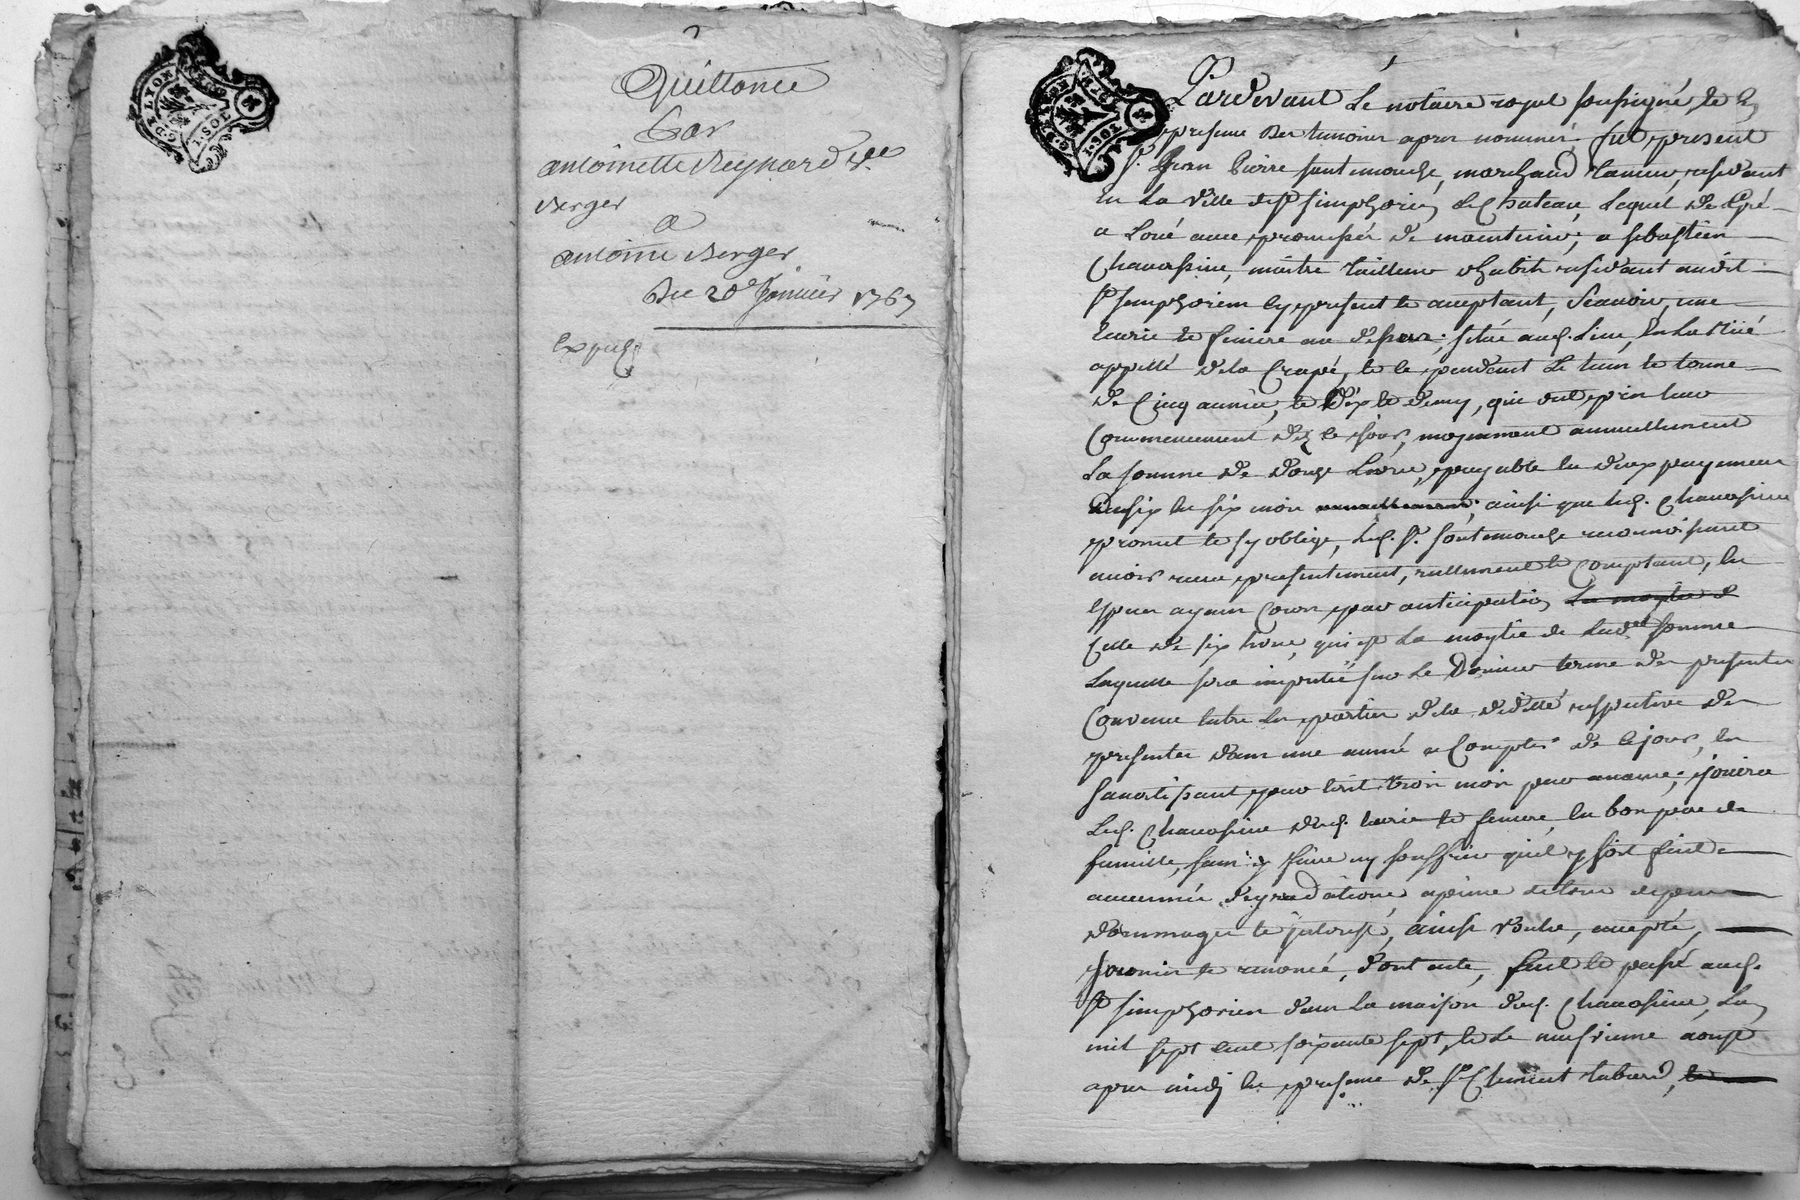 G. DE LYON
1. SOL
Quittance
Par
antoinette Reynard Ve
Berger
a
antoine Berger
Du 20e Janvier 1767
Expedé
G. DE LYON
1. SOL
Pardevant Le notaire royal soussigné, et En
presence des temoins apres nommés, fut present
Sr. Jean Pierre fontimouche, marchand Tanneur, residant
En La ville de St simphorien Le Chateau, Lequel de Gré
a Loué avec promesse de maintenir, a sebastien
Chavassieu, maitre tailleur d'habits residant audit
St simphorien cy present et acceptant, Scavoir, une
Ecurie et feniere au dessus, située aud. Lieu, En La Ruë
appellé de la Crapé, et ce pendant Le tems et terme
de Cinq années, et dix et demy, qui ont pris leur
Commencement dez ce jour, moyennant annuellement
La somme de douze Livres, payable En deux payements
de six En six mois ainsi que led. Chavassieu
promet et s'y oblige, Led. Sr. fontimouche reconnoissant
avoir receu presentement, réellement et Comptant, En
Especes ayant Cours par anticipation La moytié d
Celle de six livres, qui est La moytié de Ladte somme
Laquelle sera imputée sur Le Dernier terme des presentes
Convenu Entre Les parties de la deditte respective des
presentes dans une année a Compter de ce jour, En
s'avertissant par Ecrit trois mois par avance, jouira
Led. Chavassieu dud. Ecurie et feniere, En bon pere de
famille, sans y faire ny souffrir qu'il y soit fait
aucunnes degradations a peine de tous depens
dommages et interest, ainsi voulu, accepté,
soumis et renoncé, dont acte, fait et passé aud.
St simphorien dans La maison dud. Chavassieu, L'an
mil sept cent soixante sept, et Le neufvieme aoust
apres midy En presence de Sr Clement tabard, et